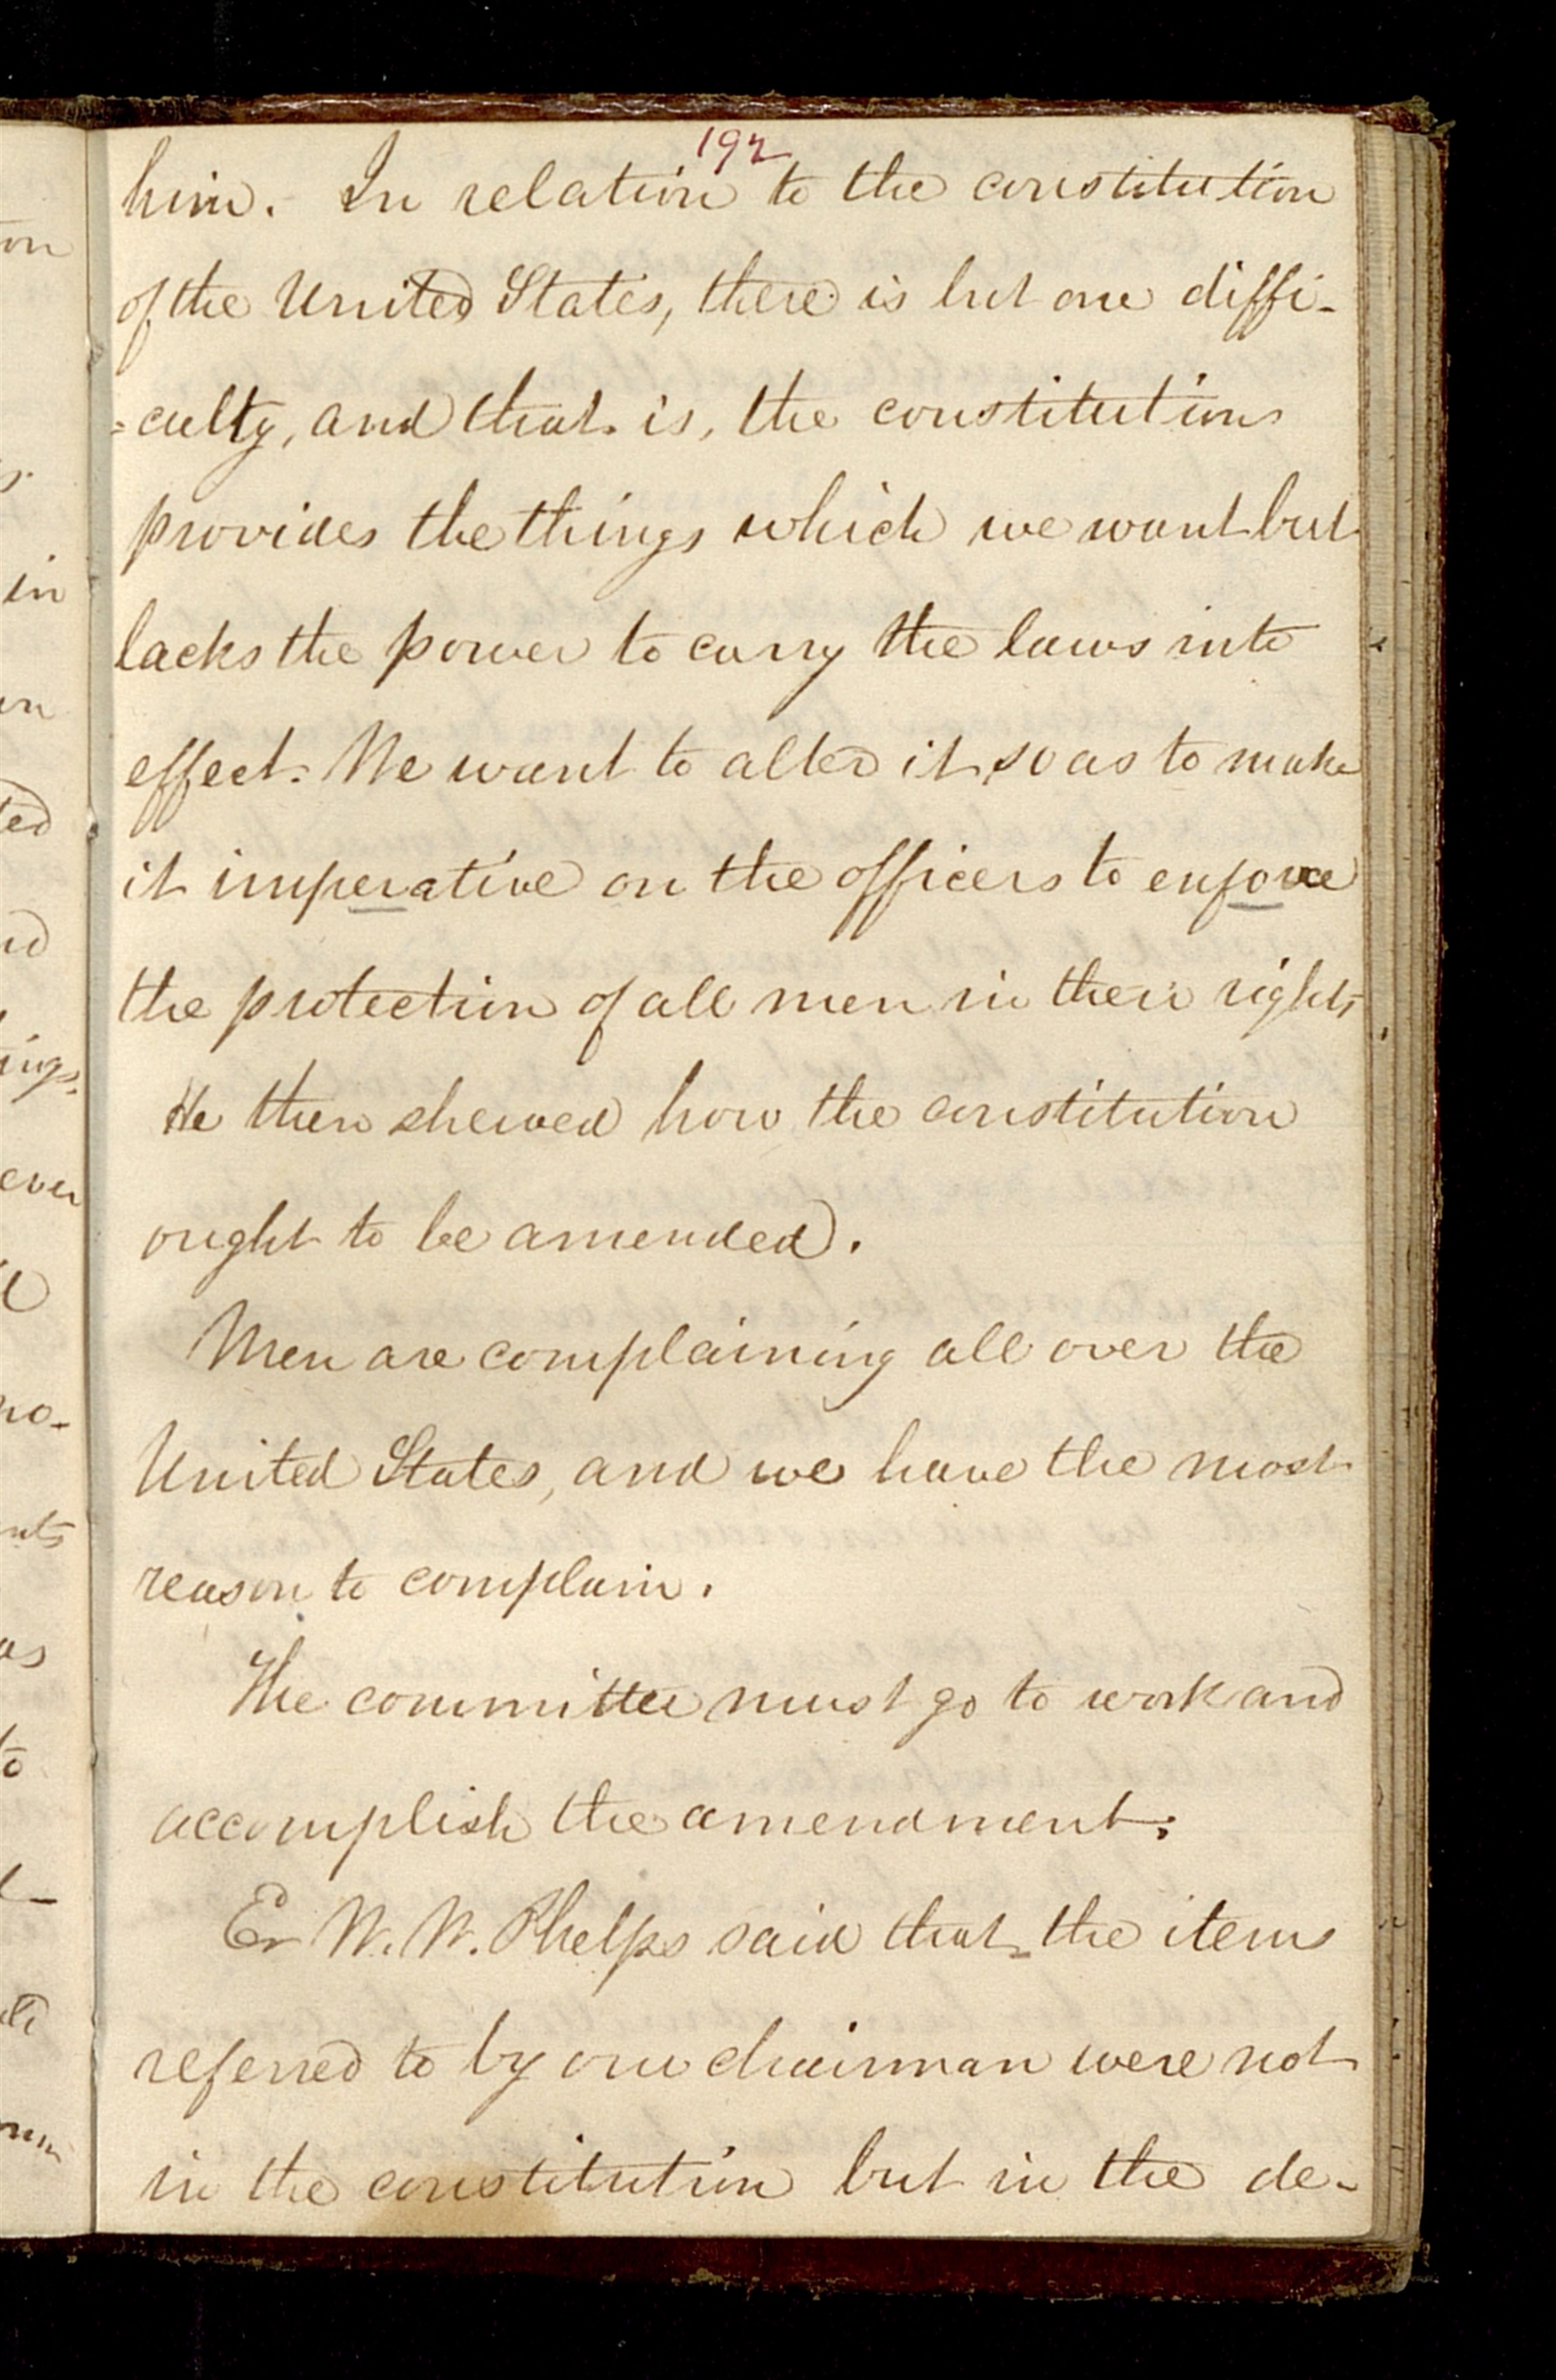 192
him. In relation to the constitution
of the United States, there is but one diffi-
=culty, and that is, the constitution
provides the things which we want but
lacks the power to carry the laws into
effect. We want to alter it so as to make
it imperative on the officers to enforce
the protection of all men in their rights
He then shewed how the constitution
ought to be amended.
Men are complaining all over the
United States, and we have the most
reason to complain.
The committee must go to work and
accomplish the amendment.
Er W. W. Phelps said that the items
referred to by our chairman were not
in the constitution but in the de-